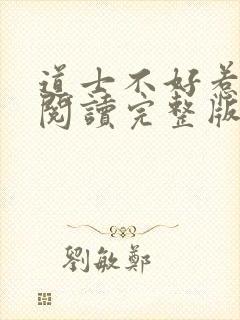 道士不好惹
閱讀完整版
劉敏鄭